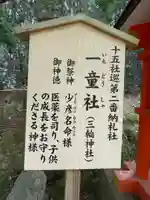 十五社巡第二番納札社
いちどうしゃ
一童社
（三輪神社）
御祭神　少彦名命様
御神徳　医薬を司り、子供
の成長をお守り
くださる神様